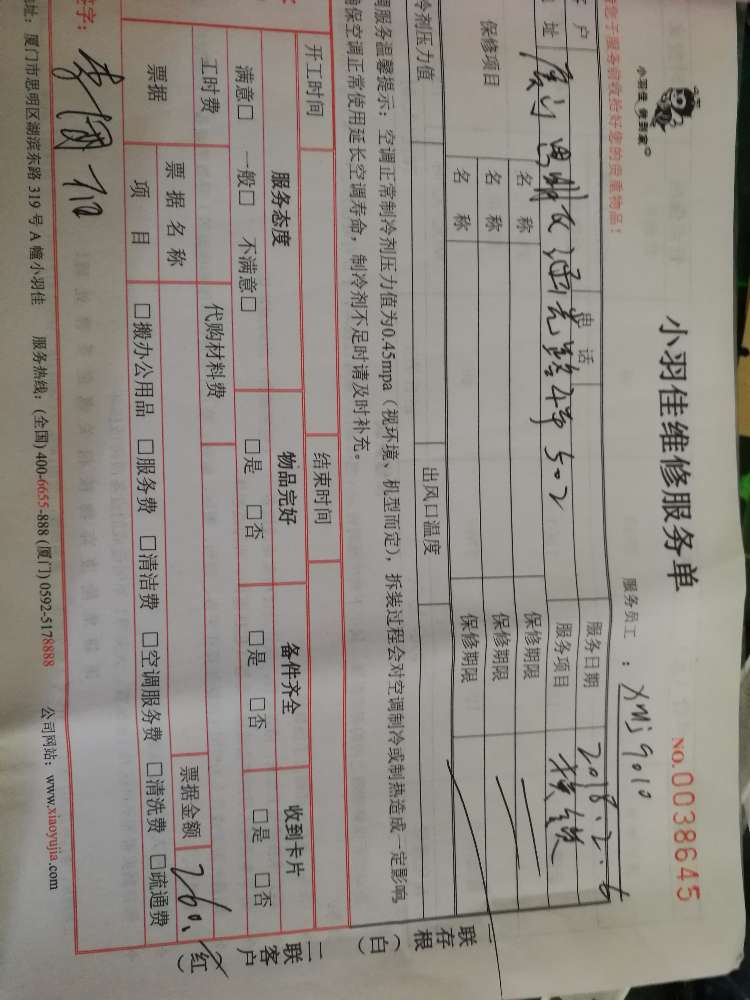 小羽佳 做到家
小羽佳维修服务单
NO.0038645
服务员工 : XMJ9010
请您于服务前收拾好您的贵重物品!
户
电 话
服务日期
2018.2.6
址
502
服务项目
保修项目
名 称
保修期限
名 称
保修期限
名 称
保修期限
冷剂压力值
出风口温度
调服务温馨提示: 空调正常制冷剂压力值为0.45mpa (视环境、机型而定), 拆装过程会对空调制冷或制热造成一定影响
保空调正常使用延长空调寿命, 制冷剂不足时请及时补充。
开工时间
结束时间
服务态度
物品完好
备件齐全
收到卡片
满意□ 一般□ 不满意□
□是 □否
□是 □否
□是 □否
工时费
代购材料费
票据
票 据 名 称
票据金额
260.
项 目
□搬办公用品 □服务费 □清洁费 □空调服务费 □清洗费 □疏通费
签字:
址: 厦门市思明区湖滨东路 319 号 A 幢小羽佳 服务热线: (全国) 400-6655-888 (厦门) 0592-5178888 公司网站: www.xiaoyujia.com
一联存根(白)
二联客户(红)